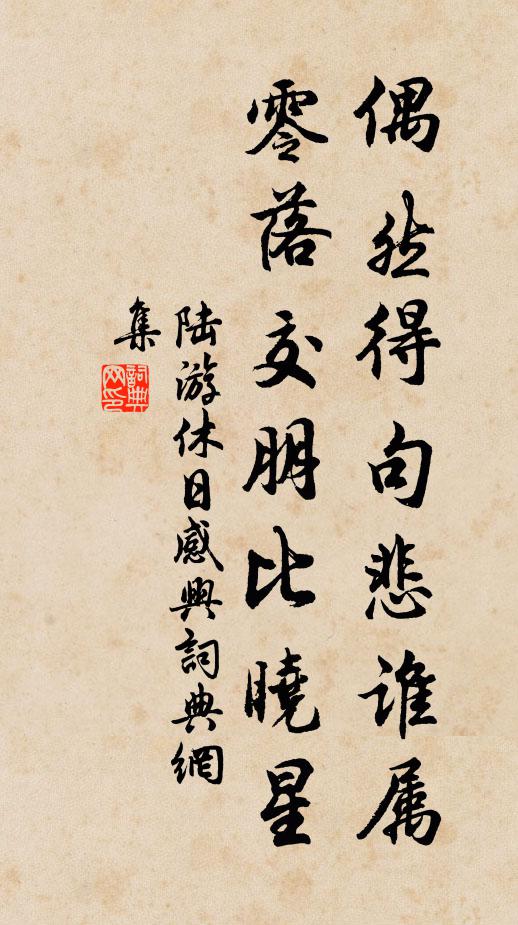 偶然得句悲谁属
零落交朋比曉星
陆游休日感興詞典網
集
詞典网印